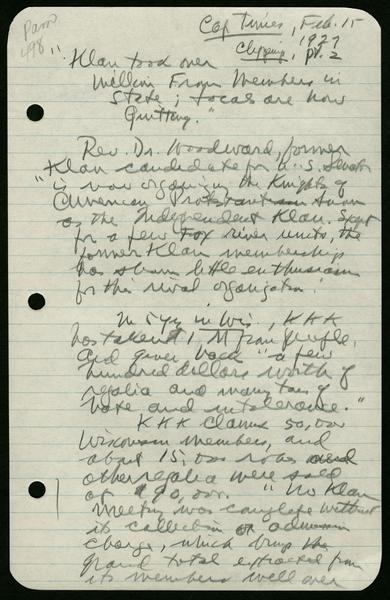 Pam
498
Cap Times, Feb. 15
Clipping, 1927
pt. 2
"Klan took over
Million From Members in
State; Locals are now
Quitting."
Rev. Dr. Woodward, former
Klan candidate for U.S. Senator
"is now organizing the Knights of
American Protestantism known
as the Independent Klan. Except
for a few Fox River units, the
former Klan membership
has shown little enthusiasm
for this rival organization."
In 5 yrs in Wis., KKK
has taken $1 M from people,
and given back "a few
hundred dollars worth of
regalia and many tons of
hate and intolerance."
KKK claims 50,000
Wisconsin members, and
about 15,000 robes and
other regalia were sold
at $90,000. "No Klan
meeting was complete without
its collection or admission
charge, which brings the
grand total extracted from
its members well over